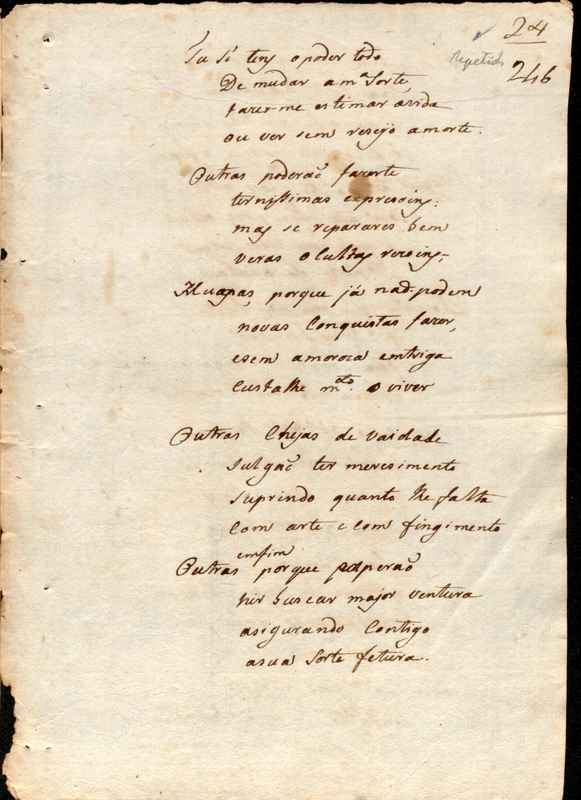 24
Repetido
246
Tu só tens o poder todo
De mudar a mª Sorte,
fazer-me estimar avida
ou ver sem receijo amorte.
Outras poderaõ fazerte
ternissimas expresoins:
mas se reparares bem
veras ocultas rezoins,
porque já nad podem
novas Conquistas fazer,
esem amoroza entriga
Custalhe mto. o viver
Outras Chejas de vaidade
Julgaõ ter meresimento
Suprindo quanto lhe falta
Com arte e com fingimento
emfim
Outras porque
hir buscar major ventura
asigurando Contigo
asua Sorte fetura.